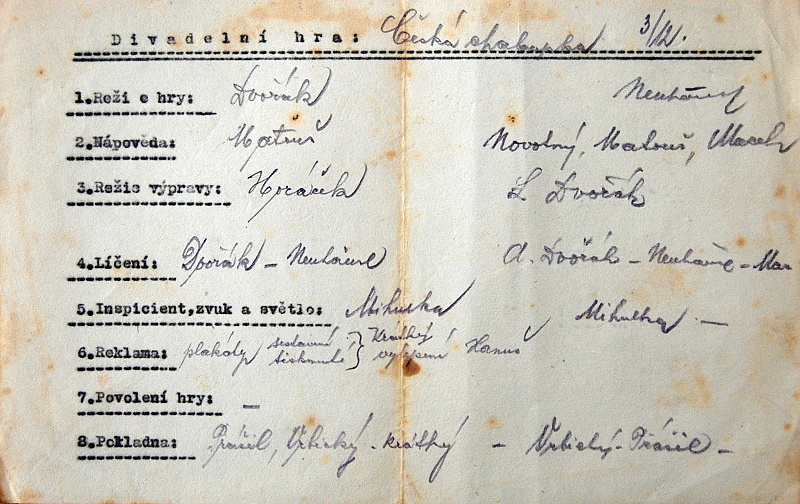 Divadelní hra: Česká chalupka 3/12.
1.Reži e hry: Dvořák Neuhäusl
2.Nápověda: Matouš Novotný, Matouš, Marek
3.Režie výpravy: Horáček L Dvořák
4.Líčení: Dvořák - Neuhäusl A. Dvořák -
5.Inspicient,zvuk a světlo: Mihulka Mihulka -
6.Reklama: plakáty sestavení, tisknutí } Krátký vylepení Hanuš
7.Povolení hry: -
8.Pokladna: Prášil, Vrbický - Krátký - Vrbický - Prášil -